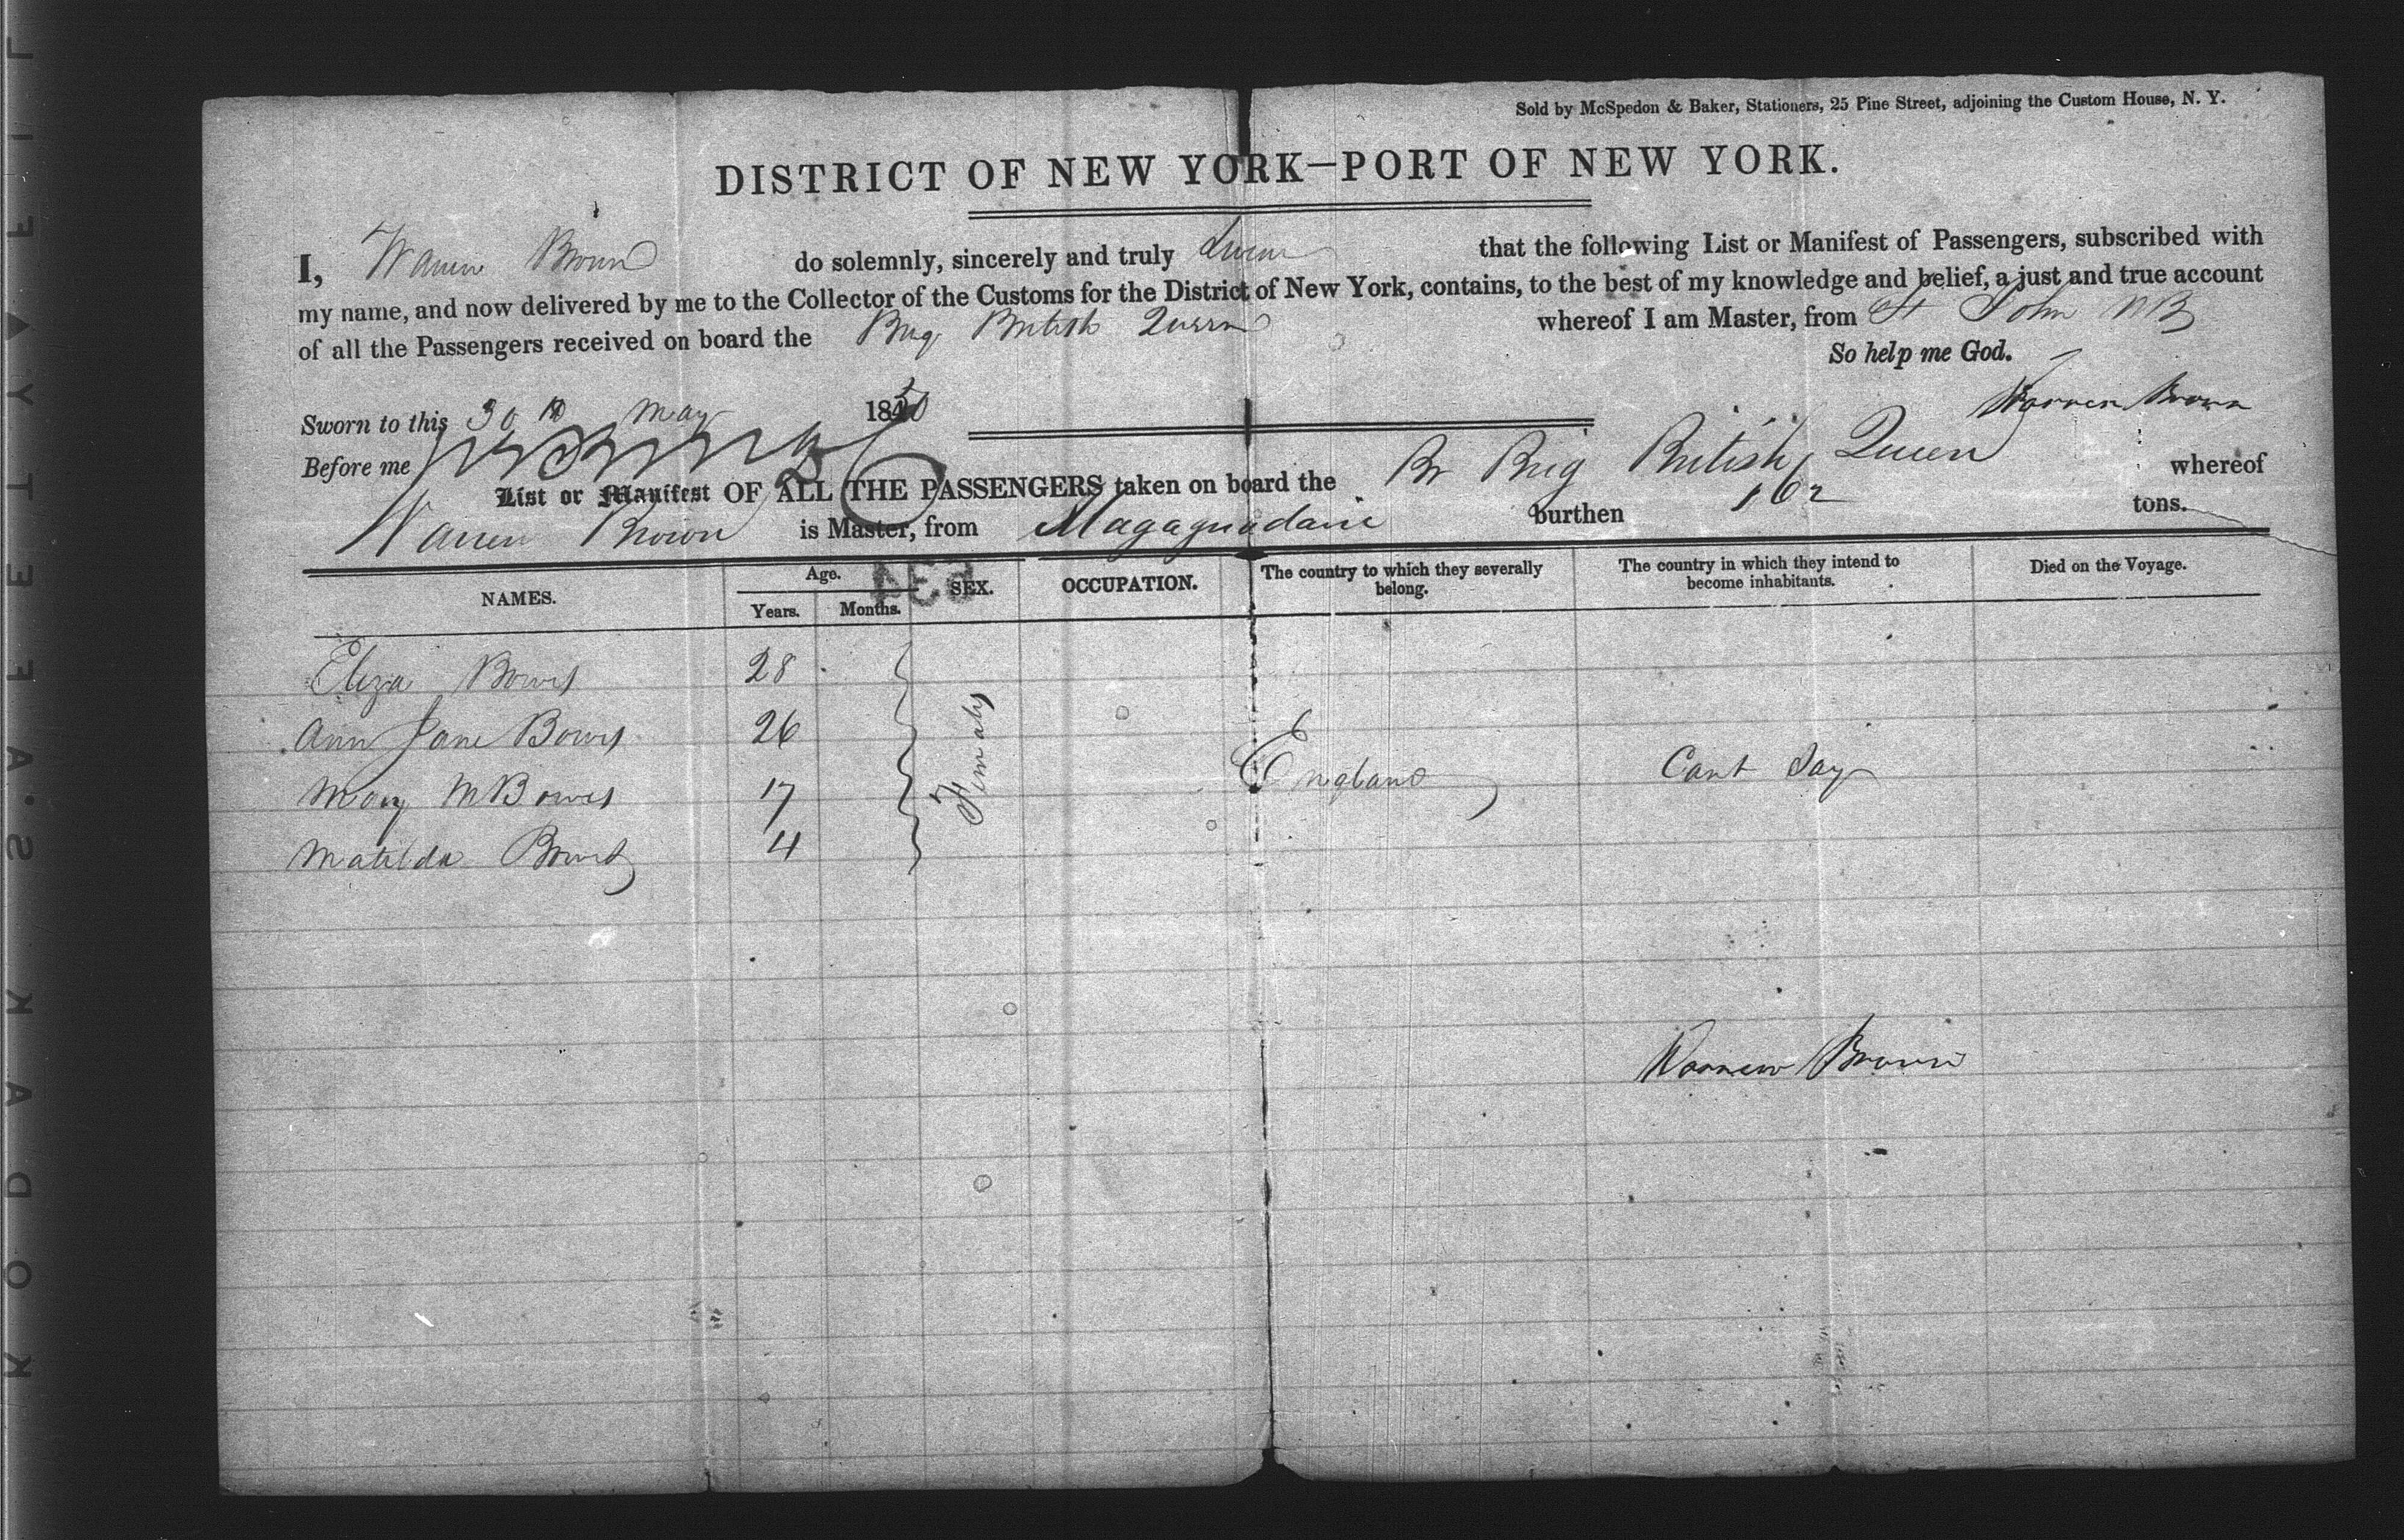 Sold by McSpedon & Baker, Stationers, 25 Pine Street, adjoining the Custom House, N. Y.
DISTRICT OF NEW YORK—PORT OF NEW YORK.
I, Warren Brown do solemnly, sincerely and truly Swear that the following List or Manifest of Passengers, subscribed with
my name, and now delivered by me to the Collector of the Customs for the District of New York, contains, to the best of my knowledge and belief, a just and true account
of all the Passengers received on board the Brig British Queen whereof I am Master, from St John NB
So help me God.
Sworn to this 30th May 1850
Warren Brown
Before me
List or Manifest OF ALL THE PASSENGERS taken on board the Br Brig British Queen whereof
Warren Brown is Master, from Magaguadavic burthen 162 tons.
NAMES. Age. Years. Months. SEX. OCCUPATION. The country to which they severally belong. The country in which they intend to become inhabitants. Died on the Voyage.
Eliza Bowes 28
Ann Jane Bowes 26
Mary M Bowes 17
Matilda Bowes 4
Females England Cant Say
Warren Brown
KODAK SAFETY FIL